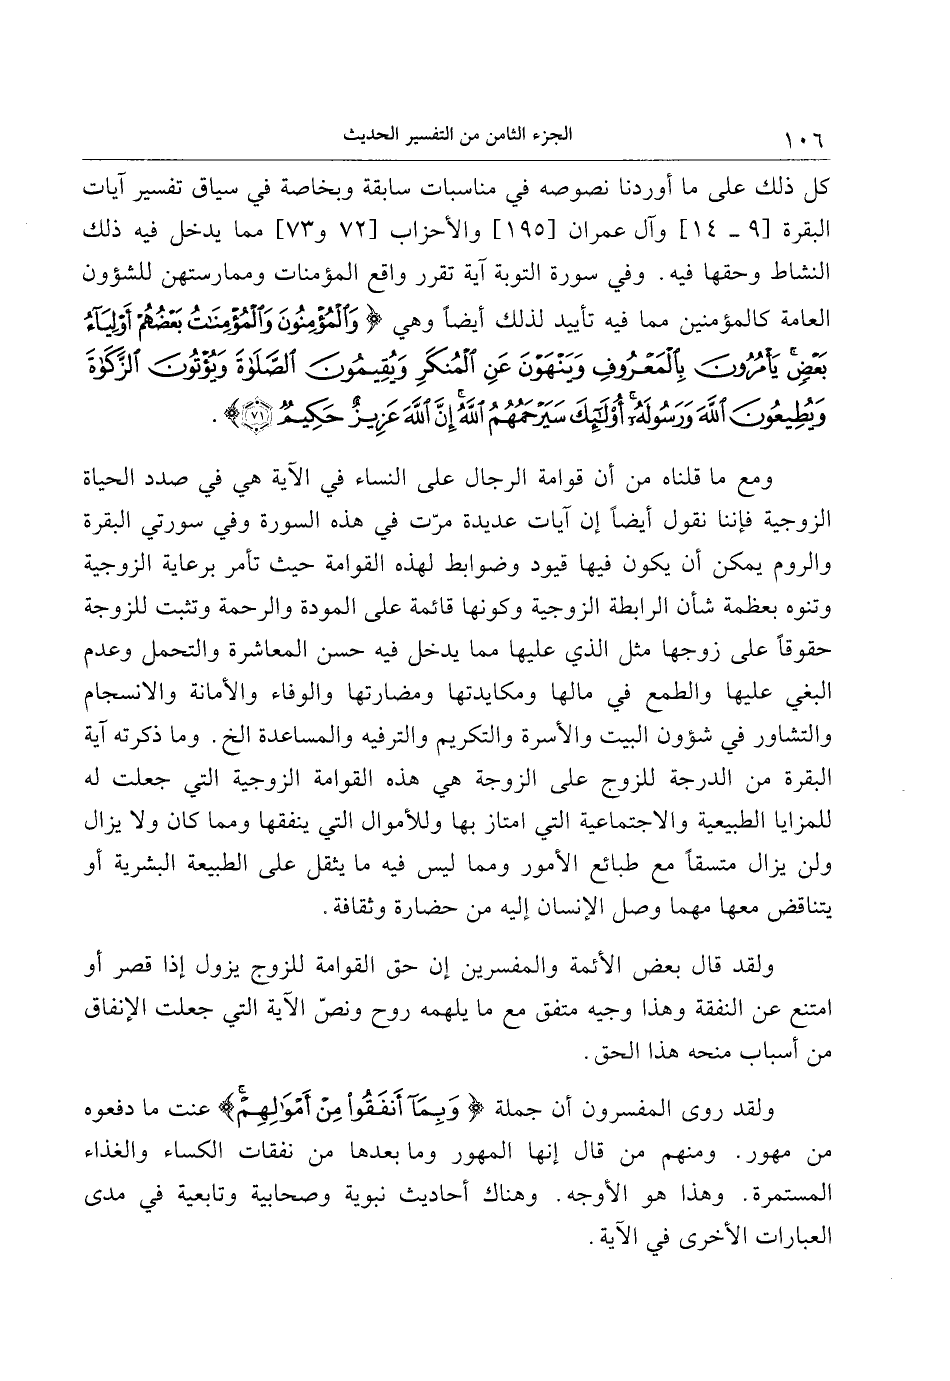 ١٠٦ الجزء الثامن من التفسير الحديث
كل ذلك على ما أوردنا نصوصه في مناسبات سابقة وبخاصة في سياق تفسير آيات
البقرة [٩ ـ ١٤] وآل عمران [١٩٥] والأحزاب [٧٢ و٧٣] مما يدخل فيه ذلك
النشاط وحقها فيه. وفي سورة التوبة آية تقرر واقع المؤمنات وممارستهن للشؤون
العامة كالمؤمنين مما فيه تأييد لذلك أيضاً وهي ﴿ وَٱلْمُؤْمِنُونَ وَٱلْمُؤْمِنَٰتُ بَعْضُهُمْ أَوْلِيَآءُ
بَعْضٍۚ يَأْمُرُونَ بِٱلْمَعْرُوفِ وَيَنْهَوْنَ عَنِ ٱلْمُنكَرِ وَيُقِيمُونَ ٱلصَّلَوٰةَ وَيُؤْتُونَ ٱلزَّكَوٰةَ
وَيُطِيعُونَ ٱللَّهَ وَرَسُولَهُۥٓۚ أُوْلَٰٓئِكَ سَيَرْحَمُهُمُ ٱللَّهُۗ إِنَّ ٱللَّهَ عَزِيزٌ حَكِيمٌ ٧١﴾ .
ومع ما قلناه من أن قوامة الرجال على النساء في الآية هي في صدد الحياة
الزوجية فإننا نقول أيضاً إن آيات عديدة مرّت في هذه السورة وفي سورتي البقرة
والروم يمكن أن يكون فيها قيود وضوابط لهذه القوامة حيث تأمر برعاية الزوجية
وتنوه بعظمة شأن الرابطة الزوجية وكونها قائمة على المودة والرحمة وتثبت للزوجة
حقوقاً على زوجها مثل الذي عليها مما يدخل فيه حسن المعاشرة والتحمل وعدم
البغي عليها والطمع في مالها ومكايدتها ومضارتها والوفاء والأمانة والانسجام
والتشاور في شؤون البيت والأسرة والتكريم والترفيه والمساعدة الخ. وما ذكرته آية
البقرة من الدرجة للزوج على الزوجة هي هذه القوامة الزوجية التي جعلت له
للمزايا الطبيعية والاجتماعية التي امتاز بها وللأموال التي ينفقها ومما كان ولا يزال
ولن يزال متسقاً مع طبائع الأمور ومما ليس فيه ما يثقل على الطبيعة البشرية أو
يتناقض معها مهما وصل الإنسان إليه من حضارة وثقافة.
ولقد قال بعض الأئمة والمفسرين إن حق القوامة للزوج يزول إذا قصر أو
امتنع عن النفقة وهذا وجيه متفق مع ما يلهمه روح ونصّ الآية التي جعلت الإنفاق
من أسباب منحه هذا الحق.
ولقد روى المفسرون أن جملة ﴿ وَبِمَآ أَنفَقُوا۟ مِنْ أَمْوَٰلِهِمْۚ﴾ عنت ما دفعوه
من مهور. ومنهم من قال إنها المهور وما بعدها من نفقات الكساء والغذاء
المستمرة. وهذا هو الأوجه. وهناك أحاديث نبوية وصحابية وتابعية في مدى
العبارات الأخرى في الآية.